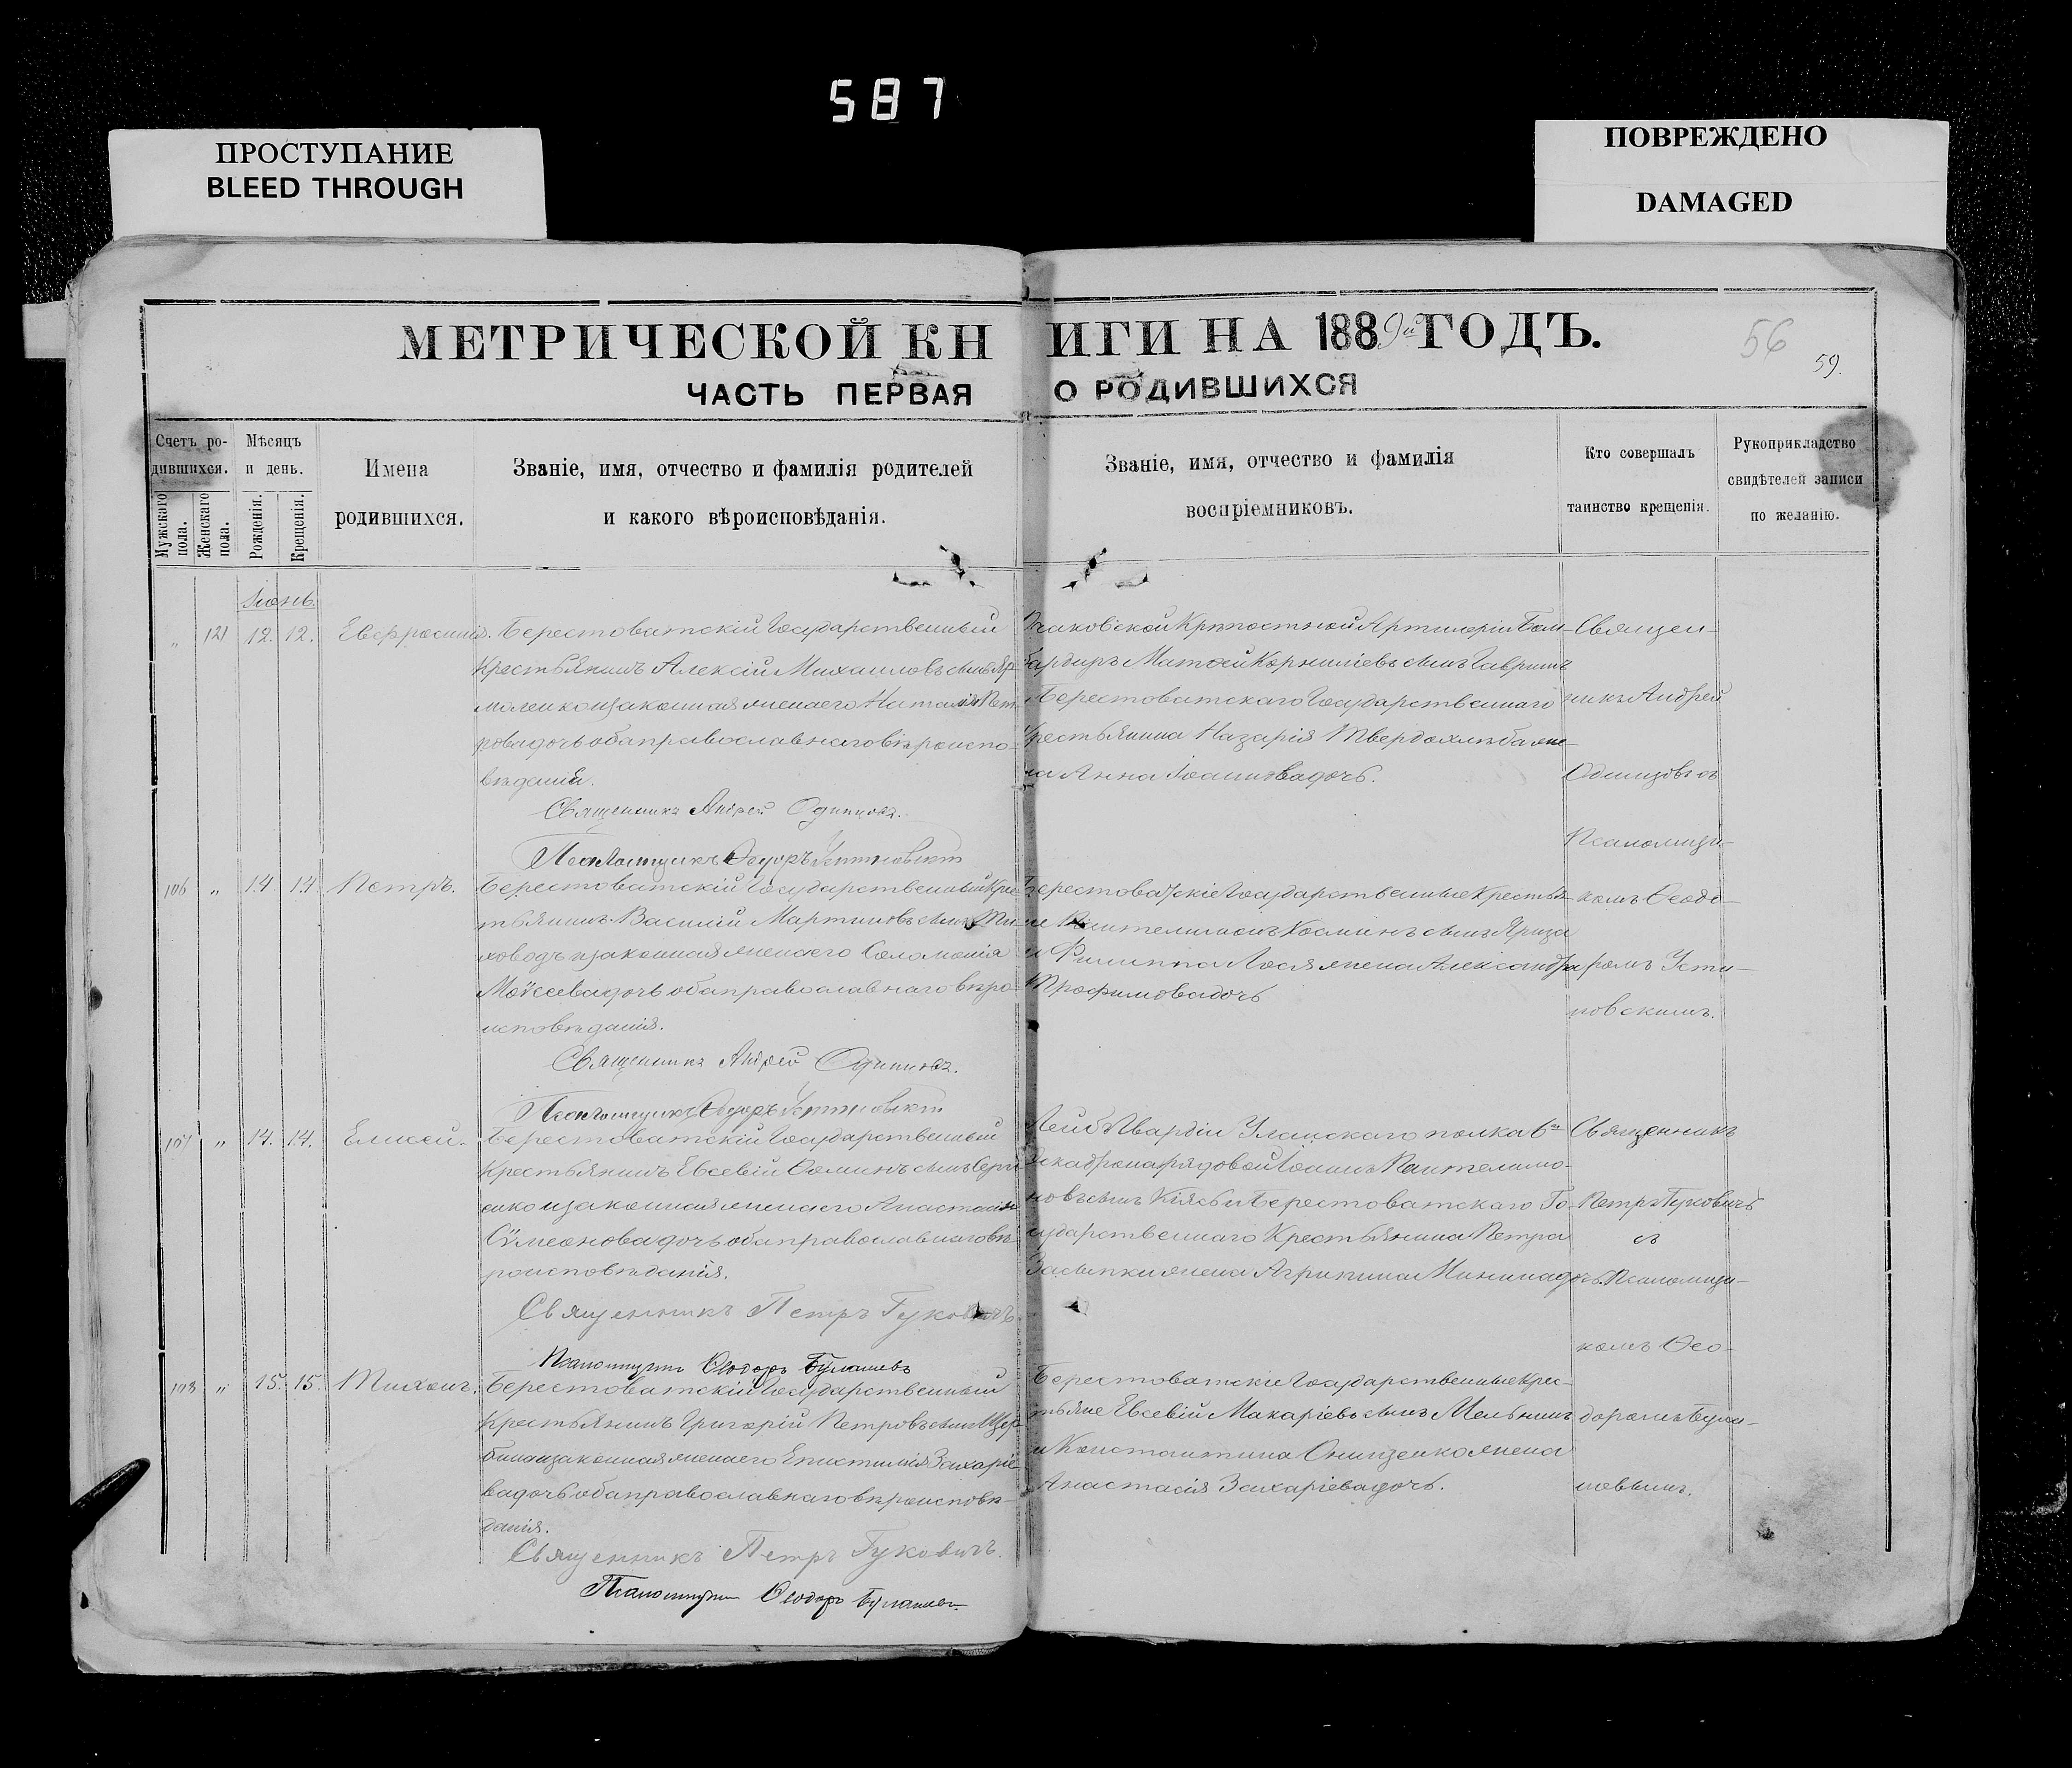 587
ПРОСТУПАНИЕ
BLEED THROUGH
ПОВРЕЖДЕНО
DAMAGED
МЕТРИЧЕСКОЙ КНИГИ НА 1889й ГОДЪ.
56
59.
ЧАСТЬ ПЕРВАЯ О РОДИВШИХСЯ
Счетъ ро-
дившихся.
Мужскаго пола.
Женскаго пола.
Мѣсяцъ
и день.
Рожденія.
Крещенія.
Имена
родившихся.
Званіе, имя, отчество и фамилія родителей
и какого вѣроисповѣданія.
Званіе, имя, отчество и фамилія
воспріемниковъ.
Кто совершалъ
таинство крещенія.
Рукоприкладство
свидѣтелей записи
по желанію.
Іюнь.
" 121 12. 12. Евфросинія. Берестоватскій Государственный
Крестьянинъ Алексій Михаиловъ сынъ Яр-
моленко и законная жена его Наталія Пет-
рова дочь оба православнаго вѣроиспо-
вѣданія.
Священникъ Андрей Одинцовъ.
Псаломщикъ Ѳеодоръ Устиновскій
Крѣпостной Артилеріи Бом-
бардиръ Матѳей Корниліевъ сынъ
Берестоватскаго Государственнаго
Крестьянина Назарія Твердохлѣба же-
на Анна Іоаннова дочь.
Священ-
никъ Андрей
Одинцовъ съ
Псаломщи-
комъ Ѳеодо-
ромъ Усти-
новскимъ.
106 " 14. 14. Петръ. Берестоватскій Государственный Крес-
тьянинъ Василій Мартиновъ сынъ Ти-
ховодъ и законная жена его Соломонія
Моѵсеева дочь оба православнаго вѣро-
исповѣданія.
Священникъ Андрей Одинцовъ.
Псаломщикъ Ѳеодоръ Устиновскій
Берестоватскіе Государственные Крестья-
не Пантелимонъ Косминъ сынъ
и Филиппа Лося жена Александра
Трофимова дочь
107 " 14. 14. Елисей. Берестоватскій Государственный
Крестьянинъ Евсевій Ѳоминъ сынъ Серги-
енко и законная жена его Анастасія
Сѵмеонова дочь оба православнаго вѣ-
роисповѣданія.
Священникъ Петръ Гуковичъ.
Псаломщикъ Ѳеодоръ
Лейбъ Гвардіи Уланскаго полка 6го
Эскадрона рядовой Іоаннъ Пантелимо-
новъ сынъ и Берестоватскаго Го-
сударственнаго Крестьянина Петра
Засыпки жена Агрипина Минина дочь.
Священникъ
Петръ Гуковичъ
съ
Псаломщи-
комъ Ѳео-
доромъ
108 " 15. 15. Тихонъ. Берестоватскій Государственный
Крестьянинъ Григорій Петровъ сынъ Щер-
бина и законная жена его Епистимія Захаріе-
ва дочь оба православнаго вѣроисповѣ-
данія.
Священникъ Петръ Гуковичъ.
Псаломщикъ Ѳеодоръ
Берестоватскіе Государственные Крес-
тьяне Евсевій Макаріевъ сынъ Мельникъ
и Константина Онищенко жена
Анастасія Захаріева дочь.